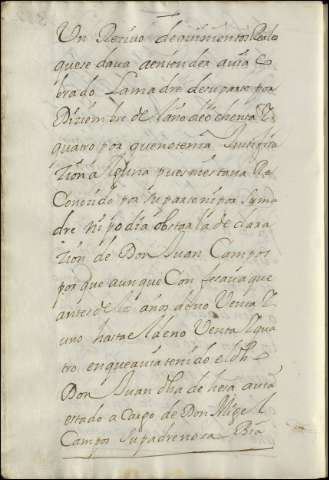 Un Recivo de quinientos Reales
que se dava aentender avia co
brado lamadre desuparte por
Diziembre de laño de ochenta y
quatro por que no tenia Justifica
tion alguna pues no estava Re
Conocido por su parte ni por su ma
dre ni podia obstar la declara
tion de Don Juan Campos
por que aunque Con fesava que
antes de los años de no Venta y
uno hasta el de no Venta y qua
tro en que avia tenido el dho
Don Juan dha dehesa avia
estado a Cargo de Don Migel
Campos su padre no sa bia